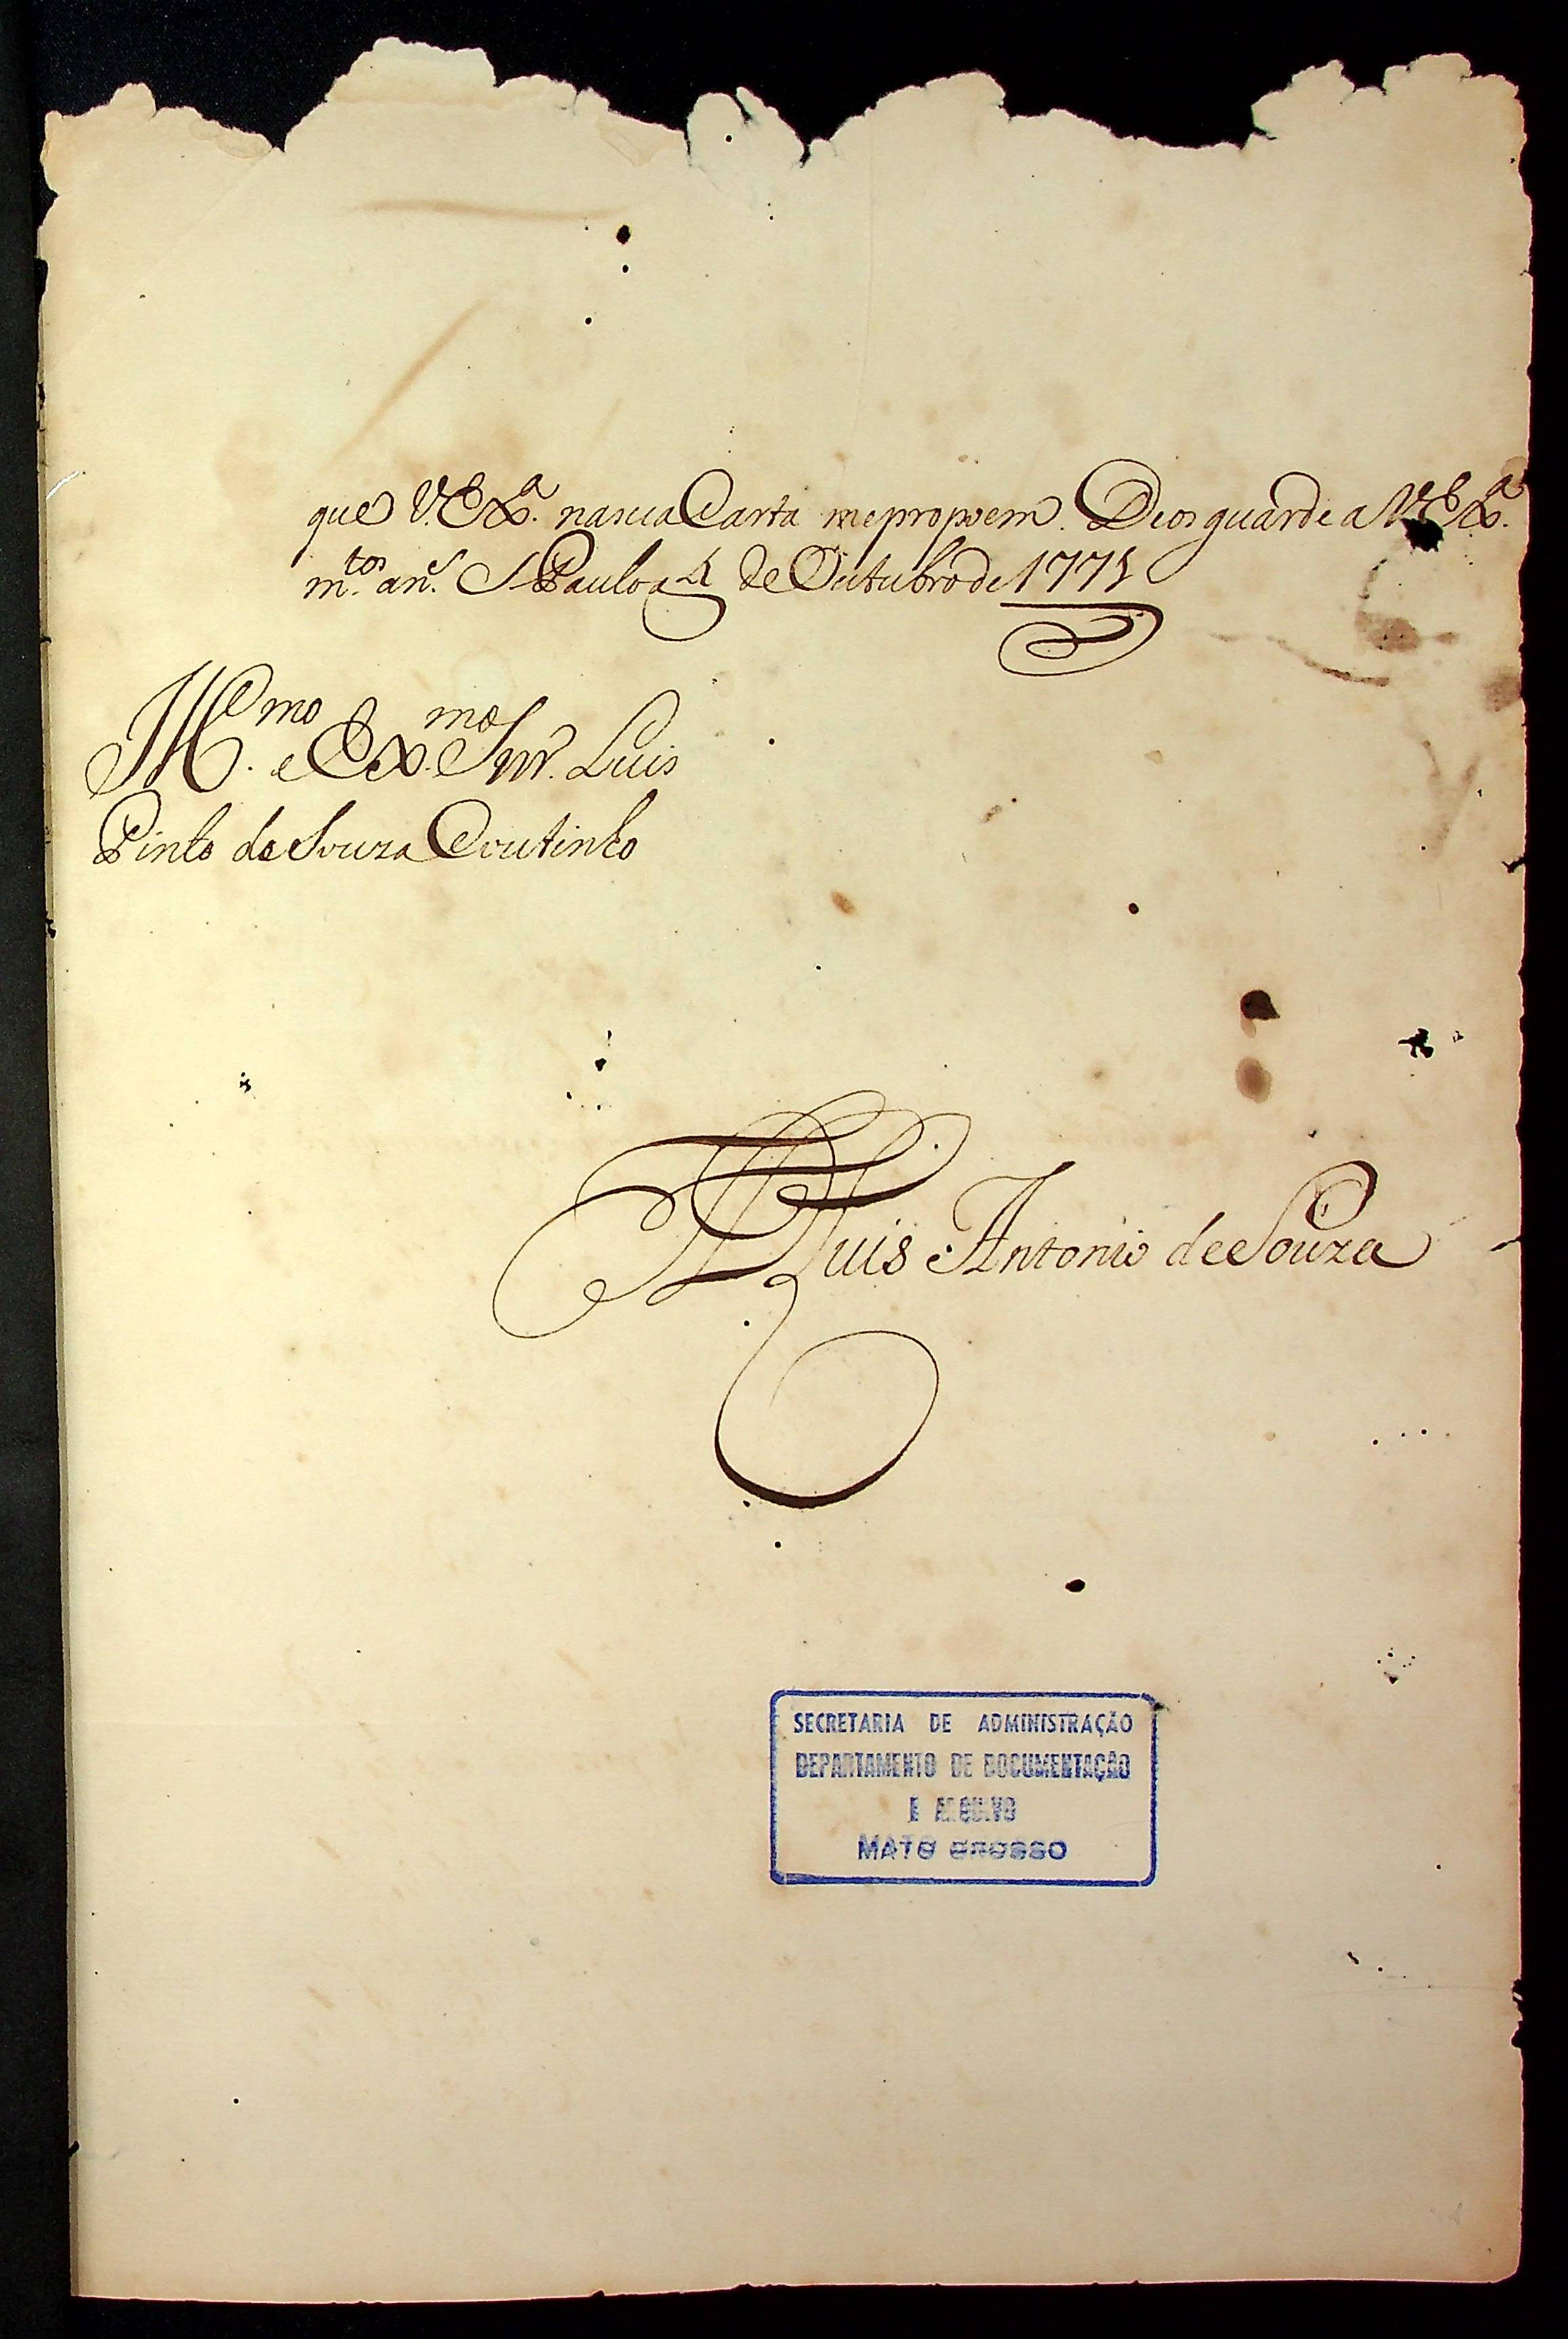 que V. Exª. nasua Carta mepropoem. Deos guarde a V. Exª.
m.tos an.s S Paulo a 4 de Outubro de 1771
Ill.mo e Ex.mo Snr. Luis
Pinto de Souza Coutinho
D. Luis Antonio de Souza
SECRETARIA DE ADMINISTRAÇÃO
DEPARTAMENTO DE DOCUMENTAÇÃO
E ARQUIVO
MATO GROSSO